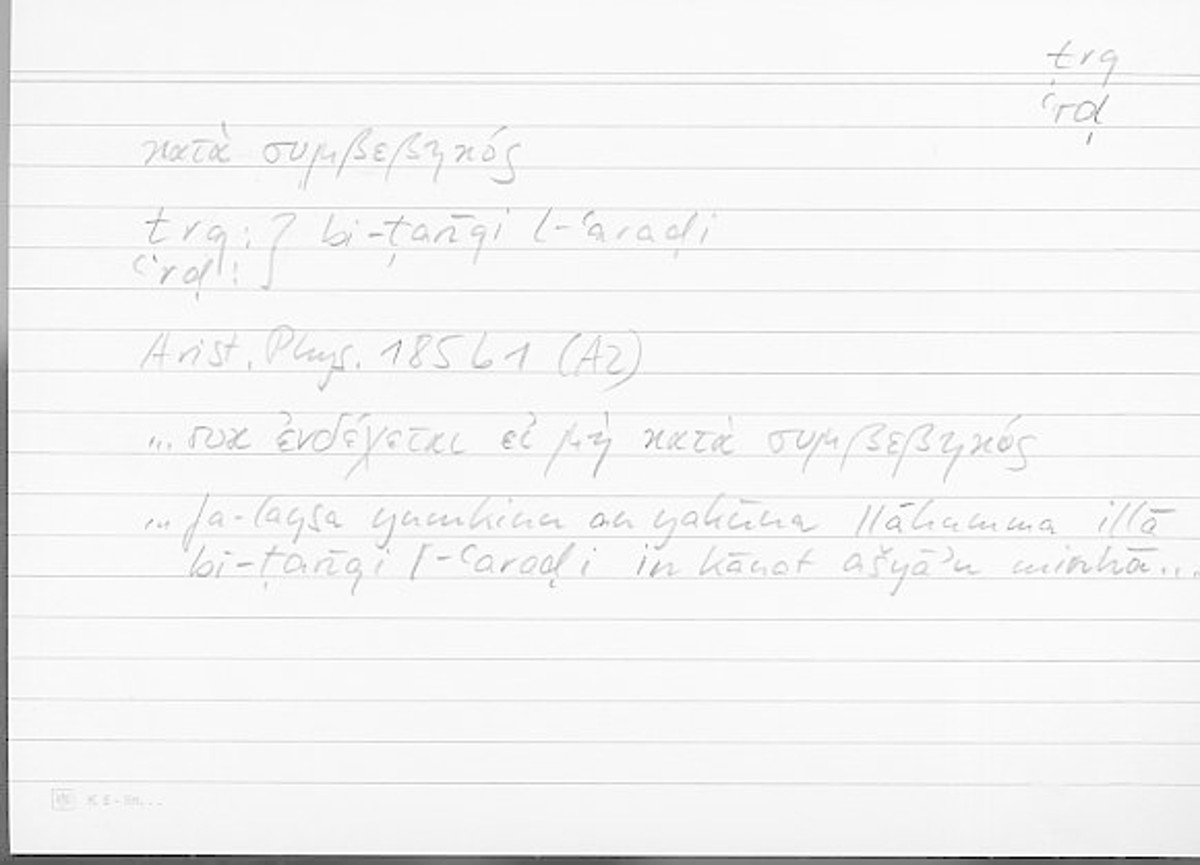 ṭrq
ʿrḍ
κατὰ συμβεβηκός
ṭrq: } bi-ṭarīqi l-ʿaraḍi
ʿrḍ:
Arist. Phys. 185 b 1 (A2)
... οὐκ ἐνδέχεται εἰ μὴ κατὰ συμβεβηκός
... fa-laysa yumkinu an yakūna llāhumma illā
bi-ṭarīqi l-ʿaraḍi in kānat ašyāʾu minhā...